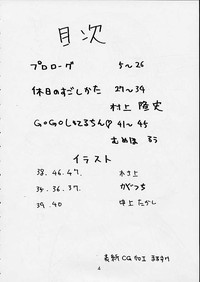 目次
プロローグ 5〜26
休日のすごしかた 27〜34
村上 隆史
GoGoしもてるちん♡ 41〜45
むめほ るう
イラスト
38.46.47. 村上
34.36.37. がっち
39.40 中上たかし
表紙CG加工
4